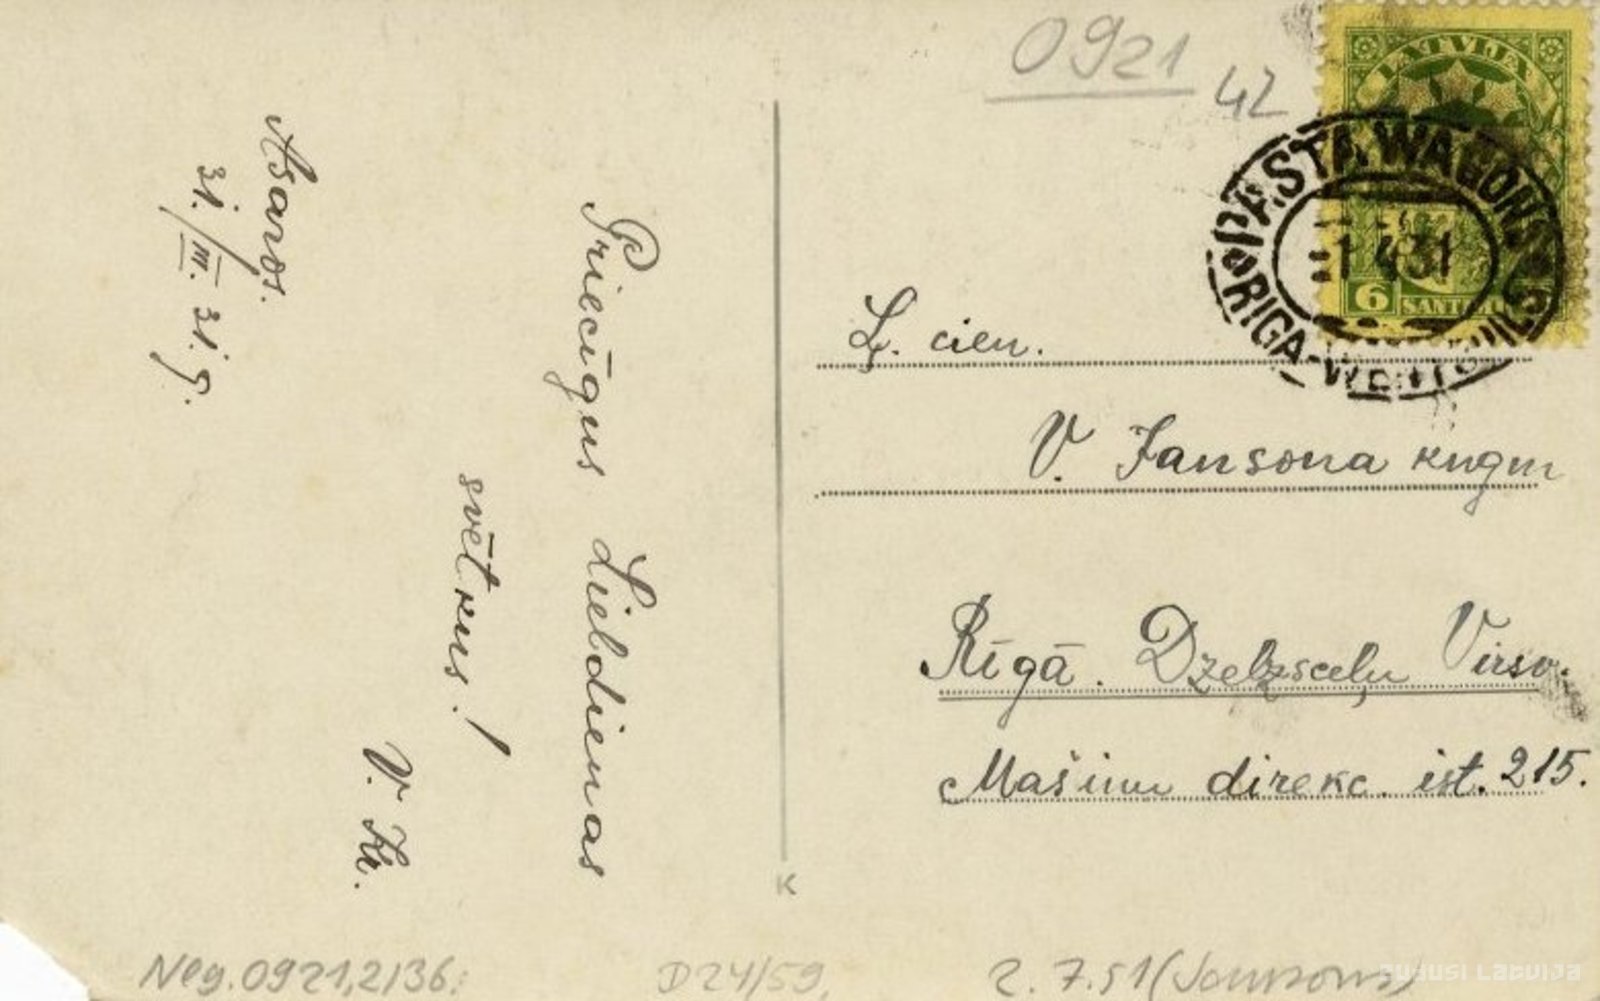 0921
42
LATVIJA
6 SANTIMI
PASTA WAGONS
1 4 31
RIGA-WENTSPILS
Asaros.
31./III. 31. g.
Priecīgus Lieldienas
svētkus!
V. Kr.
Ļ. cien.
V. Jansona kngm
Rīgā. Dzelzsceļu Virsv.
Mašīnu direkc. ist. 215.
K
Neg. 0921,2/36:
D24/59.
2. 7.51 (Jansons)
ZUDUSI LATVIJA